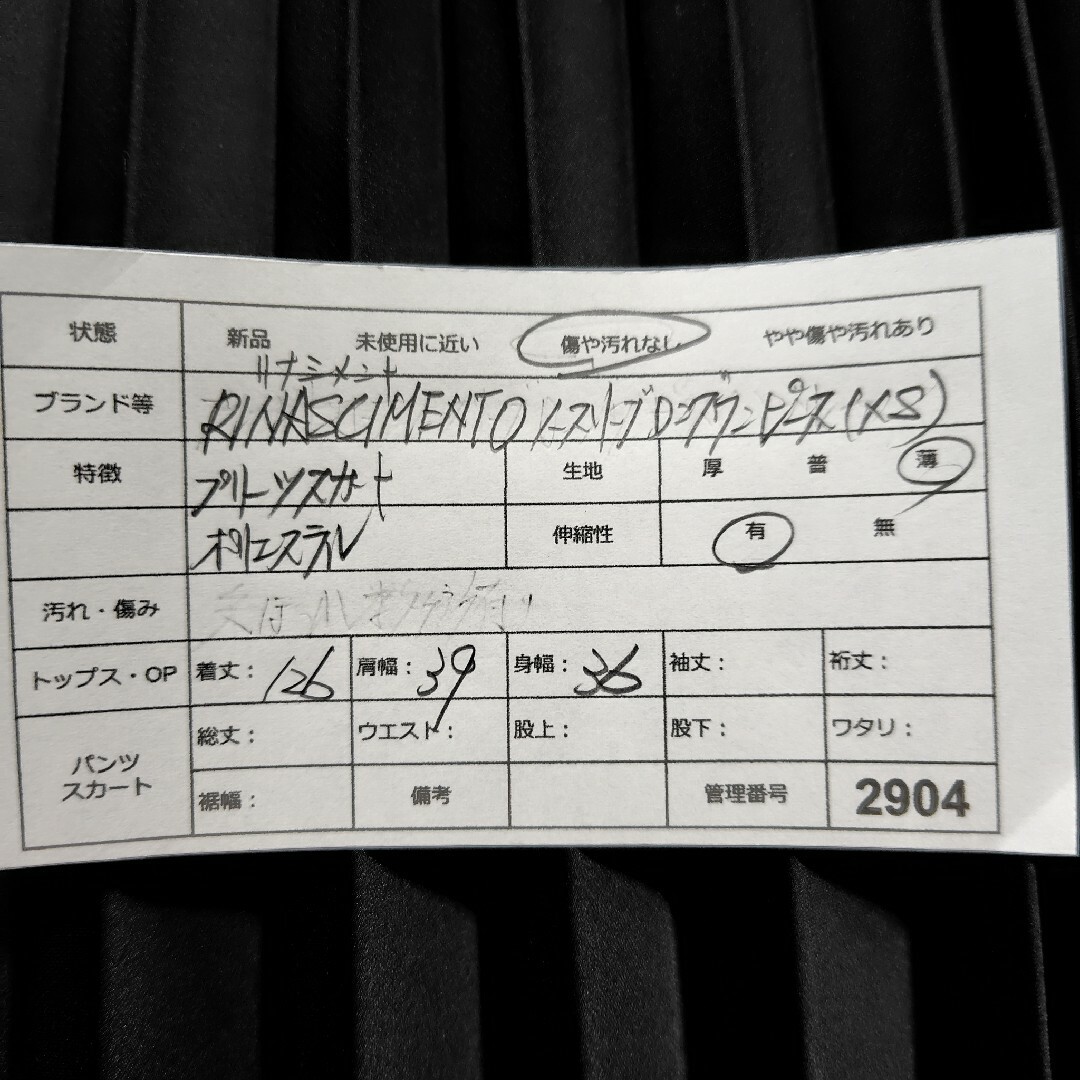 状態 新品 未使用に近い 傷や汚れなし やや傷や汚れあり
リナシメント
ブランド等 RINASCIMENTO ノースリーブロングワンピース(XS)
特徴 プリーツスカート 生地 厚 普 薄
ポリエステル 伸縮性 有 無
汚れ・傷み
トップス・OP 着丈: 126 肩幅: 39 身幅: 36 袖丈: 裄丈:
パンツ スカート 総丈: ウエスト: 股上: 股下: ワタリ:
裾幅: 備考 管理番号 2904